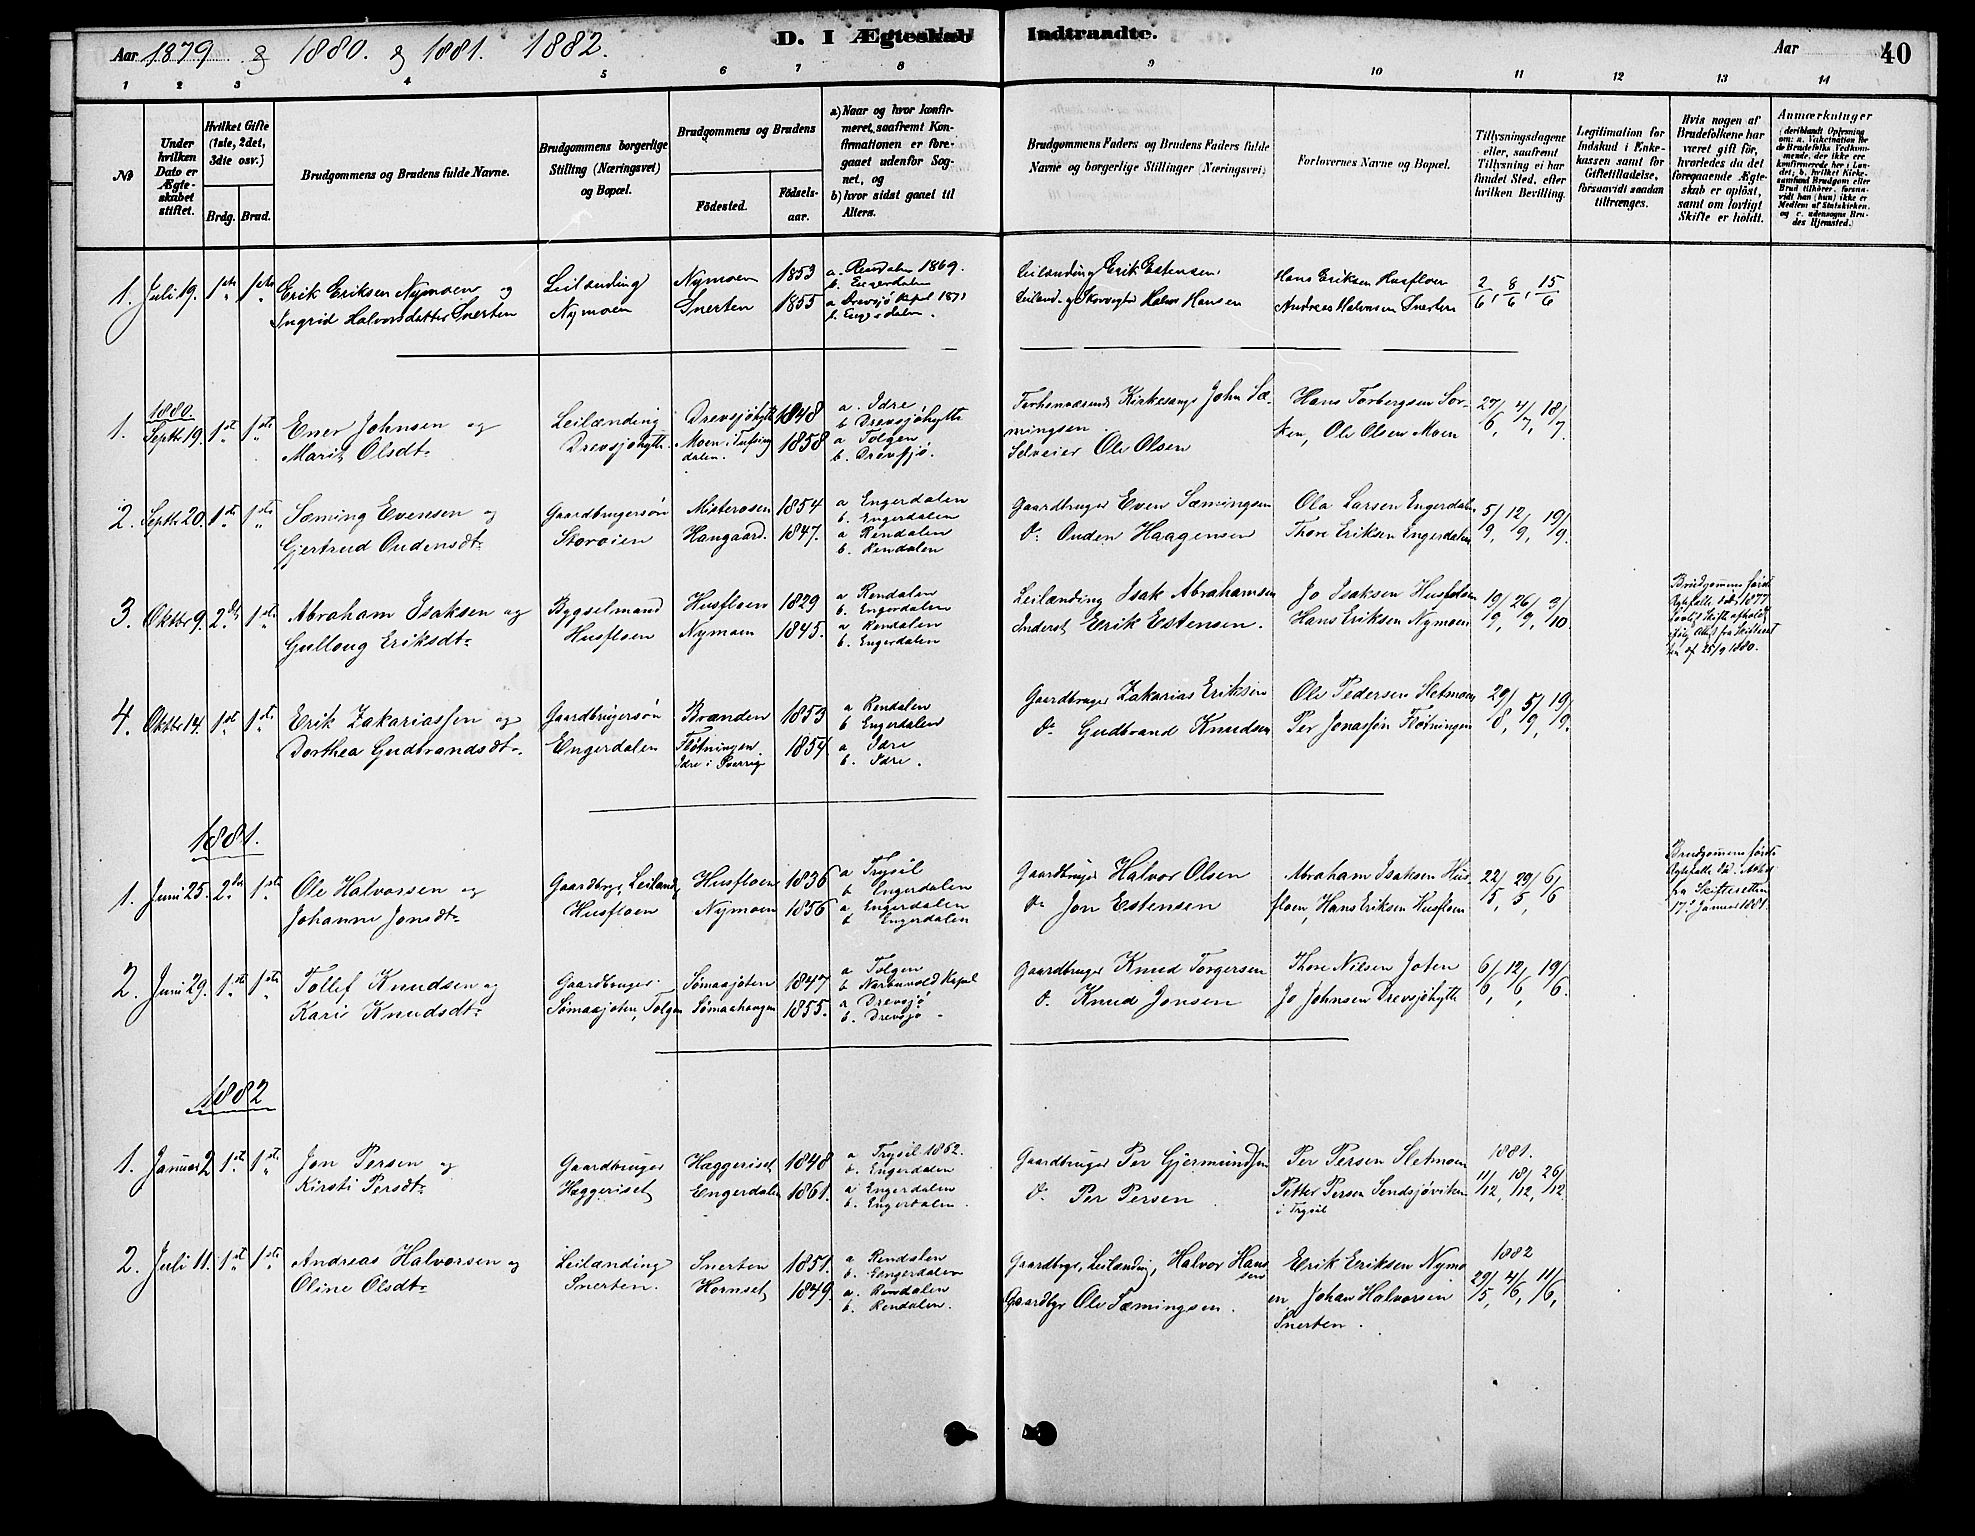 Aar 1879 & 1880. & 1881. 1882.
D. I Ægteskab Indtraadte.
Aar
40
1 2 3 4 5 6 7 8 9 10 11 12 13 14
No
Under hvilken Dato er Ægteskabet stiftet.
Hvilket Gifte (1ste, 2det, 3die osv.)
Brdg. Brud.
Brudgommens og Brudens fulde Navne.
Brudgommens borgerlige Stilling (Næringsvei) og Bopæl.
Brudgommens og Brudens
Födested.
Födselsaar.
a) Naar og hvor konfirmeret, saafremt Konfirmationen er foregaaet udenfor Sognet, og
b) hvor sidst gaaet til Alters.
Brudgommens Faders og Brudens Faders fulde Navne og borgerlige Stillinger (Næringsvei)
Forlovernes Navne og Bopæl.
Tillysningsdagene eller, saafremt Tillysning ei har fundet Sted, efter hvilken Bevilling.
Legitimation for Indskud i Enkekassen samt for Giftetilladelse, forsaavidt saadan tiltrænges.
Hvis nogen af Brudefolkene har været gift før, hvorledes da det foregaaende Ægteskab er oplöst, samt om lovligt Skifte er holdt.
Anmærkninger
1. Juli 19. 1ste 1ste Erik Eriksen Nymoen og Leilænding Nymoen 1853 a. Rendalen 1869. Leilænding Erik Estensen Hans Eriksen Husfloen 2/6, 8/6, 15/6
Ingrid Halvorsdatter Snerten Nymoen Snerten 1855 Leilænd. og Halvor Hansen Andreas Halvorsen Snerten
1880.
1. Septbr 19. 1ste 1ste Ener Johnsen og Leilænding Drevsjöhytt 1848 a. Idre Kirkesang. John Sæ- Hans Torbergsen Sor- 27/6, 4/7, 18/7
Marit Olsdtr Drevsjöhytt. Moen i Tufsing 1858 b. Drevsjöhytte mingsen ken, Ole Olsen Moen
dalen. a Tolgen Selveier Ole Olsen
b. Drevsjö.
2. Septbr 20. 1ste 1ste Sæming Evensen og Gaardbrugersön Misterosen 1854 a Engerdalen Gaardbruger Even Sæmingsen Ola Larsen Engerdalen 5/9, 12/9, 19/9.
Gjertrud Oudensdtr Storoien Haugaard. 1847. b. Engerdalen Do Ouden Haagensen Thore Eriksen Engerdalen
a Rendalen
b. Rendalen
3. Oktbr 9. 2det 1ste Abraham Isaksen og Bygselmand Husfloen 1829 a Rendalen Leilænding Isak Abrahamsen Jo Isaksen Husfloen 19/9, 26/9, 3/10 Brudgommens første
Gullaug Eriksdtr Husfloen Nymoen 1845. b. Engerdalen Inderst Erik Estensen. Hans Eriksen Nymoen Ægtefælle død 1877
a Rendalen
b. Engerdalen af 25/9 1880.
4. Oktbr 14. 1ste 1ste Erik Zakariassen og Gaardbrugersön Branden 1853 a Rendalen Gaardbruger Zakarias Eriksen Ole Pedersen Sletmoen 29/8, 5/9, 19/9.
Dorthea Gudbrandsdtr Engerdalen Flötningen 1854 b Engerdalen Do Gudbrand Knudsen Per Jonassön Flötningen
Idre i Sverrig a. Idre
b. Idre.
1881.
1. Juni 25. 2det 1ste Ole Halvorsen og Gaardbrgr, Leilændg Husfloen 1836 a Trysil Gaardbruger Halvor Olsen Abraham Isaksen Hus- 22/5, 29/5, 6/6 Brudgommens første
Johanne Jonsdtr Husfloen Nymoen 1856 b Engerdalen Do Jon Estensen floen, Hans Eriksen Husfloen Ægtefælle død. Attest
a Engerdalen fra Skifteretten
b Engerdalen 17de Januar 1881.
2. Juni 29. 1ste 1ste Tollef Knudsen og Gaardbruger Sömaajoten 1847 a Tolgen Gaardbruger Knud Torgersen Thore Nilsen Joten 6/6, 12/6, 19/6.
Kari Knudsdtr Sömaajoten, Tolgen Sömaahaugen 1855. b Narbuvold Kapel Do Knud Jonsen Jo Johnsen Drevsjöhytte
a Drevsjö
b. Drevsjö
1882
1. Januar 2 1ste 1ste Jon Persen og Gaardbruger Hæggeriset 1848 a Trysil 1862. Gaardbruger Per Gjermundsen Per Persen Sletmoen 1881.
Kirsti Persdtr Hæggeriset Engerdalen 1861. b. Engerdalen Do Per Persen Petter Persen Sendsjöviken 11/12, 18/12, 26/12.
a Engerdalen i Trysil
b. Engerdalen.
2. Juli 11. 1ste 1ste Andreas Halvorsen og Leilænding Snerten 1851. a Rendalen Gaardbrgr, Leilænding, Halvor Han- Erik Eriksen Nymo 1882
Oline Olsdtr Snerten. Hornset 1849. b. Engerdalen sen en, Johan Halvorsen 29/5, 4/6, 11/6,
a. Rendalen Gaardbgr Ole Sæmingsen. Snerten.
b. Rendalen.